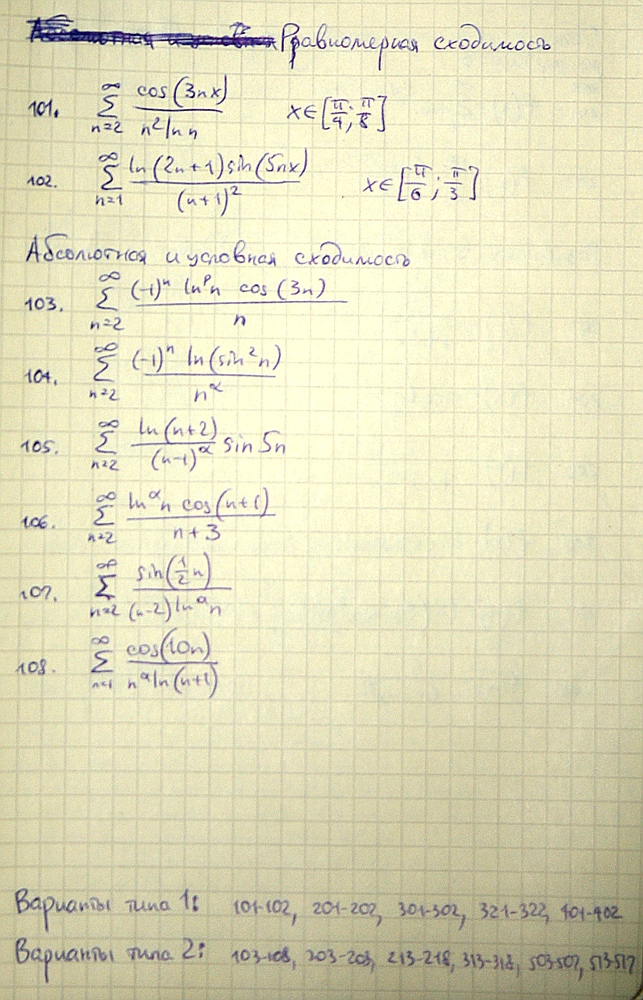 Равномерная сходимость
101. ∑_{n=2}^{∞} cos(3nx) / (n² ln n)   x∈[π/4; π/8]
102. ∑_{n=1}^{∞} ln(2n+1) sin(5nx) / (n+1)²   x∈[π/6; π/3]
Абсолютная и условная сходимость
103. ∑_{n=2}^{∞} (-1)ⁿ lnᵖn cos(3n) / n
104. ∑_{n=2}^{∞} (-1)ⁿ ln(sin²n) / n^α
105. ∑_{n=2}^{∞} ln(n+2) / (n-1)^α sin 5n
106. ∑_{n=2}^{∞} ln^α n cos(n+1) / (n+3)
107. ∑_{n=2}^{∞} sin(½n) / ((n-2) ln^α n)
108. ∑_{n=1}^{∞} cos(10n) / (n^α ln(n+1))
Варианты типа 1: 101-102, 201-202, 301-302, 321-322, 401-402
Варианты типа 2: 103-108, 203-208, 213-218, 313-318, 503-507, 513-517